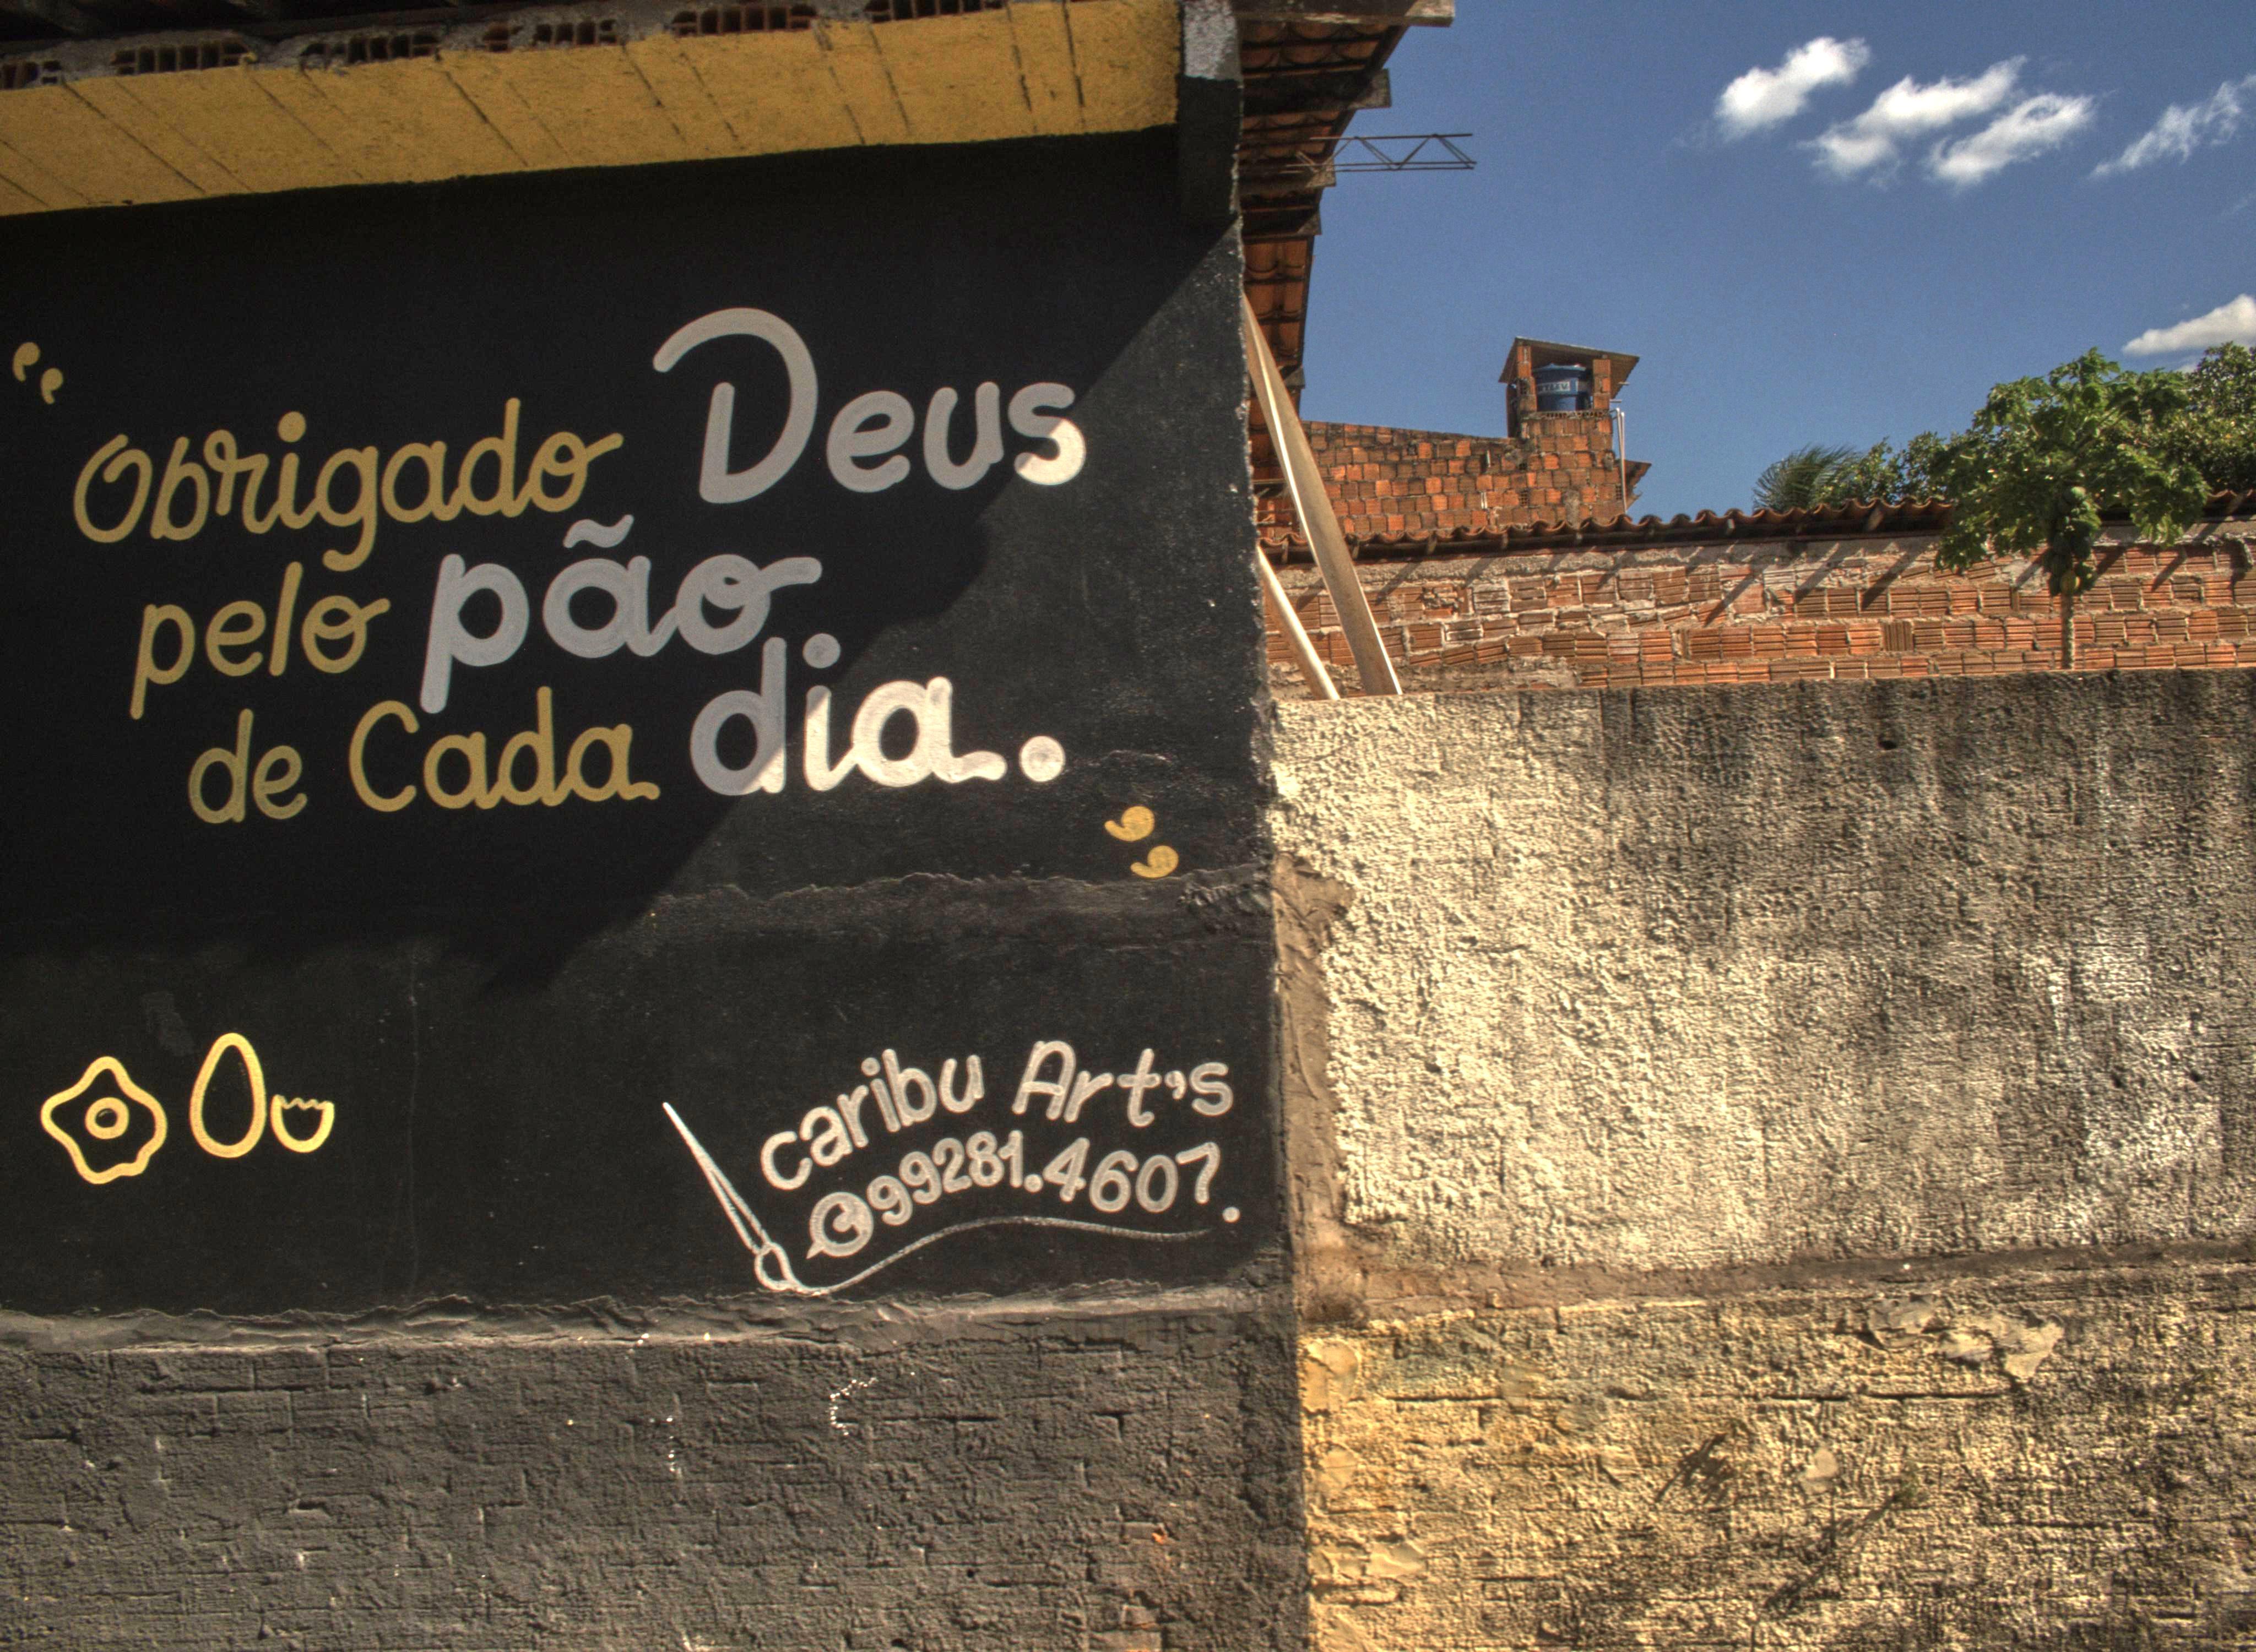 “Obrigado Deus
pelo pão
de Cada dia.”
caribu Art's
99281.4607.